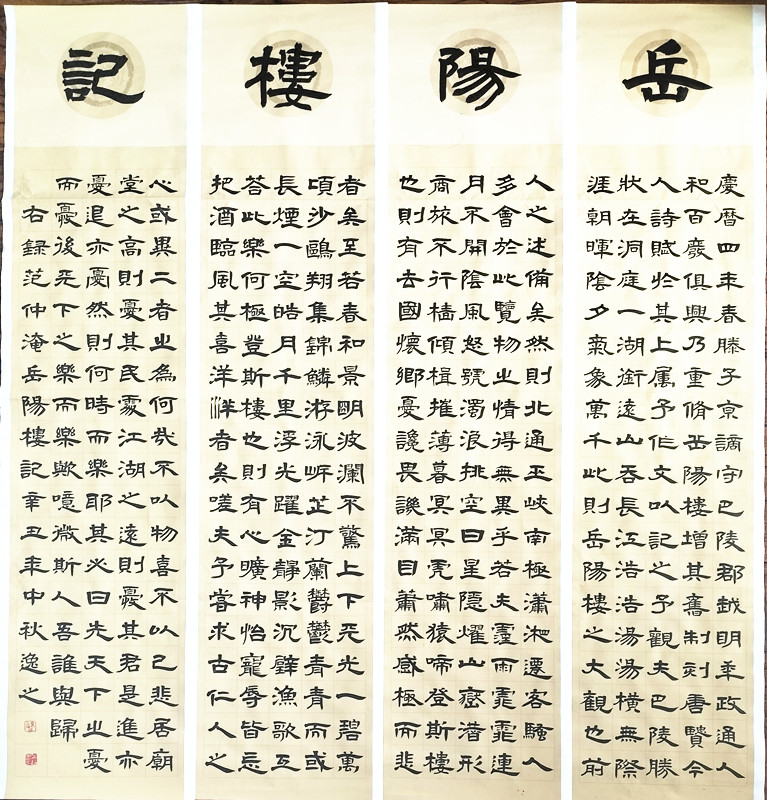 岳陽樓記
慶曆四年春滕子京謫守巴陵郡越明年政通人
和百廢俱興乃重脩岳陽樓增其舊制刻唐賢今
人詩賦於其上屬予作文以記之予觀夫巴陵勝
狀在洞庭一湖銜遠山吞長江浩浩湯湯橫無際
涯朝暉陰夕氣象萬千此則岳陽樓之大觀也前
人之述備矣然則北通巫峽南極瀟湘遷客騷人
多會於此覽物之情得無異乎若夫霪雨霏霏連
月不開陰風怒號濁浪排空日星隱燿山岳潛形
商旅不行檣傾楫摧薄暮冥冥虎嘯猿啼登斯樓
也則有去國懷鄉憂讒畏譏滿目蕭然感極而悲
者矣至若春和景明波瀾不驚上下天光一碧萬
頃沙鷗翔集錦鱗游泳岸芷汀蘭鬱鬱青青而或
長煙一空皓月千里浮光躍金靜影沉璧漁歌互
答此樂何極登斯樓也則有心曠神怡寵辱皆忘
把酒臨風其喜洋洋者矣嗟夫予嘗求古仁人之
心或異二者之為何哉不以物喜不以己悲居廟
堂之高則憂其民處江湖之遠則憂其君是進亦
憂退亦憂然則何時而樂耶其必曰先天下之憂
而憂後天下之樂而樂歟噫微斯人吾誰與歸
右録范仲淹岳陽樓記辛丑年中秋逸之